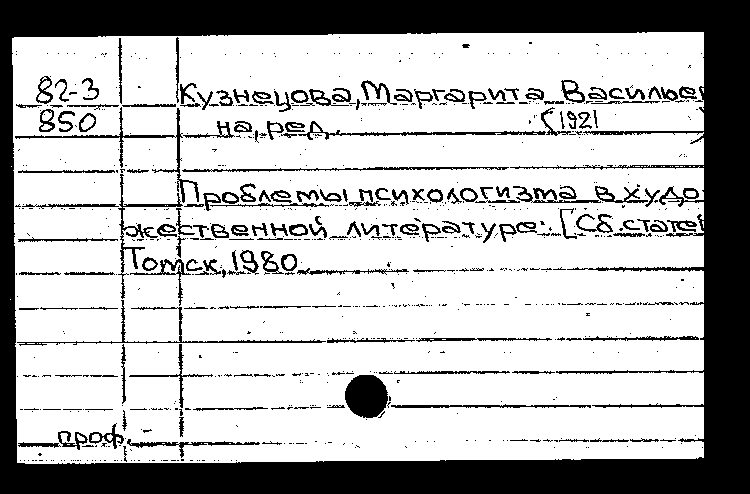 82-3 Кузнецова, Маргарита Василье
850 на, ред. (1921
Проблемы психологизма в худо
жественной литературе: [Сб. статей
Томск, 1980.
проф.